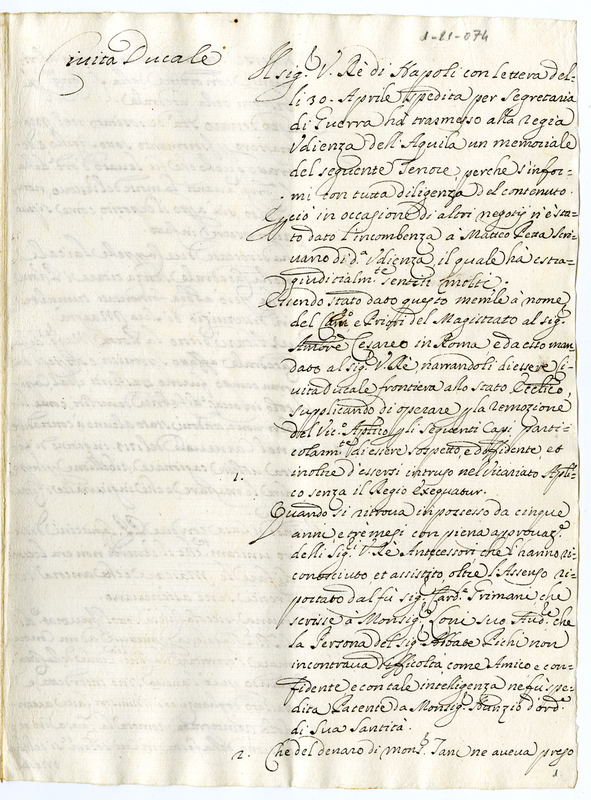 1-21-074
Civita Ducale
Il sig.r V. Rè di Napoli con lettera del-
li 30. Aprile spedita per Segretaria
di Guerra hà trasmesso alla regia
Udienza dell'Aquila un memoriale
del seguente Tenore, perche s'infor-
mi con tutta diligenza del contenuto.
E ciò in occasione di altri negotij n'è sta-
to dato l'incombenza à Matteo Scri-
vano di d.a Udienza, il quale hà estra-
giudicialm.te sentiti molti.
Essendo stato dato questo mem.le à nome
del e Priori del Magistrato al sig.
Amb.re Cesareo in Roma, e da esso man-
dato al sig.r V. Rè narrandoli di essere Ci-
vita Ducale frontiera allo stato Eccl.ico,
supplicando di operare p la remozione
del Vic.o Ap.lico p li seguenti Capi parti-
colarm.te di essere sospetto, e diffidente, et
1. inoltre d'essersi intruso nel Vicariato Apli-
co senza il Regio exequatur.
Quando si ritrova in possesso da cinque
anni e trè mesi con piena approvaz.e
delli Sig.ri V. Rè Antecessori che l'hanno ri-
conosciuto et assistito, oltre l'Assenso ri-
portato dal fù sig. Card. Grimani che
scrisse à Monsig.r suo Aud.re che
la Persona del sig. Abbate Pichi non
incontrava difficoltà come Amico e con-
fidente e con tale intelligenza ne fù spe-
dita Patente da Monsig.r Nunzio d'ord.e
di Sua Santità.
2. Che del denaro di mons.r ne aveva preso
1